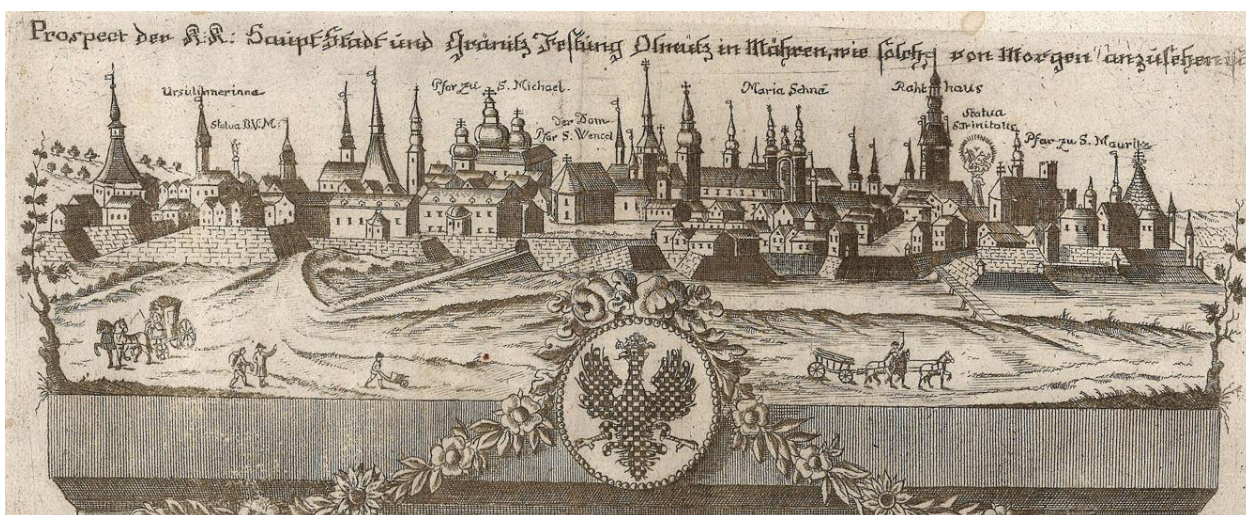 Prospect der K.K: Haupt Stadt und Gränitz Festung Olmütz in Mähren, wie solche von Morgen anzusehen ist
Ursulinneriane
Statua B.V.M:
Pfar zu S. Michael.
Der Dom
Pfar S. Wencel
Maria Schne
Raht haus
Statua
S. Trinitatis
Pfar zu S. Mauritz